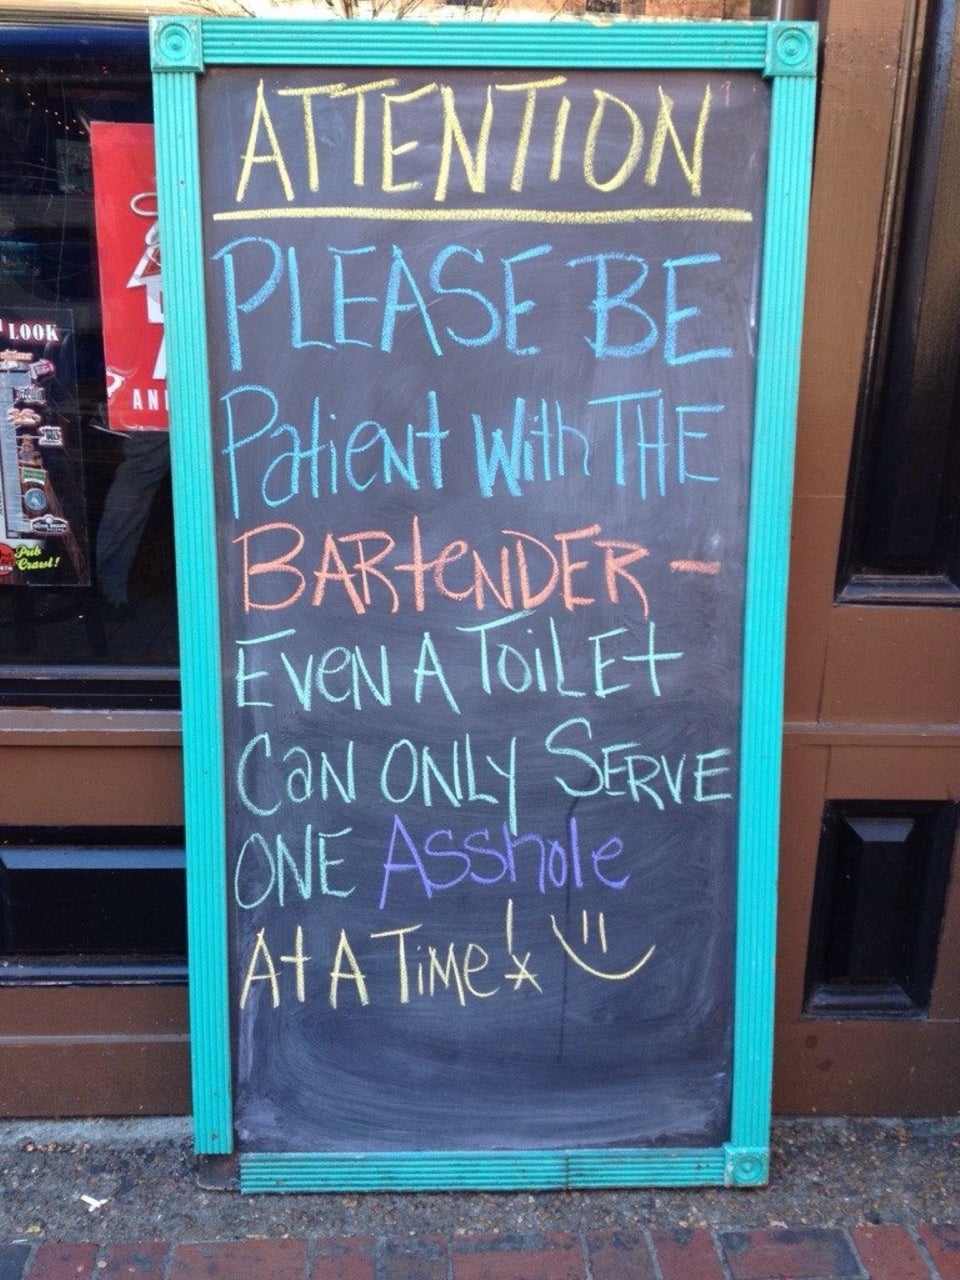 ATTENTION
PLEASE BE
Patient With THE
BARtENDER -
EVeN A ToiLEt
CaN ONLY SERVE
ONE Asshole
At A Time!
LOOK
AN
Pub
Crawl!